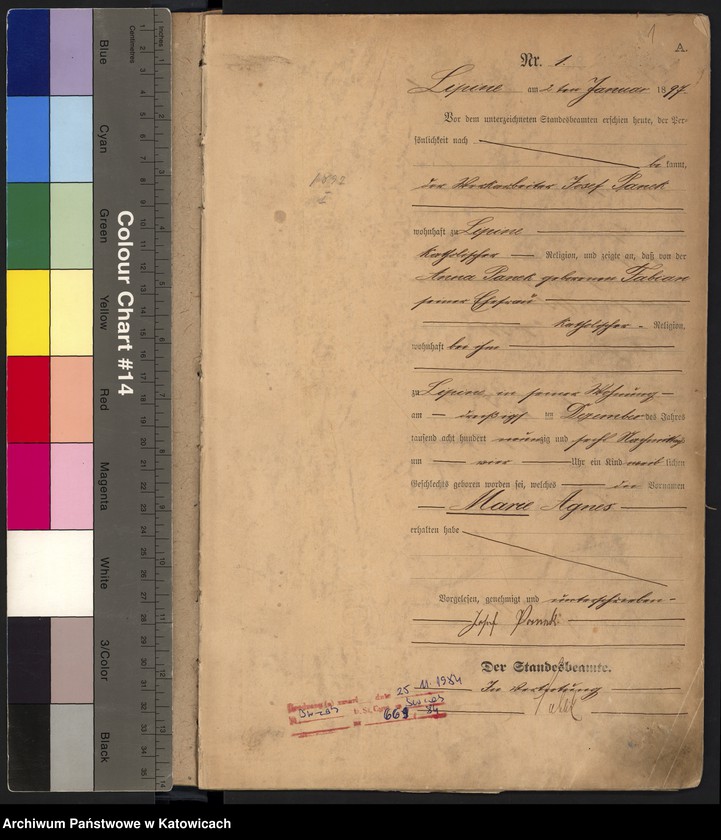 Blue
Cyan
Green
Yellow
Red
Magenta
White
3/Color
Black
Colour Chart #14
Centimetres
Inches
1
A.
Nr. 1.
Lipine am 2 ten Januar 1897.
Vor dem unterzeichneten Standesbeamten erschien heute, der Per-
sönlichkeit nach
be kannt,
der Werkarbeiter Josef Panek
wohnhaft zu Lipine
katholischer Religion, und zeigte an, daß von der
Anna Panek geborenen Fabian
seiner Ehefrau
katholischer Religion,
wohnhaft bei ihm
zu Lipine in seiner Wohnung
am dreißigst ten Dezember des Jahres
tausend acht hundert neunzig und sechs Nachmittags
um vier Uhr ein Kind weib lichen
Geschlechts geboren worden sei, welches die Vornamen
Marie Agnes
erhalten habe
Vorgelesen, genehmigt und unterschrieben
Josef Panek
Der Standesbeamte.
In Vertretung
25-11-1984
669 84
Archiwum Państwowe w Katowicach